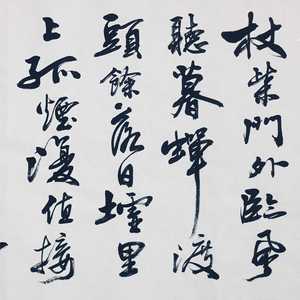 杖柴門外臨風
聽暮蟬渡
頭餘落日墟里
上孤煙復值接